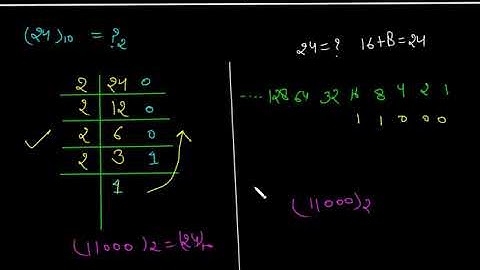 (24)10 = ?2
2 24 0
2 12 0
2 6 0
2 3 1
1
(11000)2 = (24)10
24 = ? 16+8=24
.... 128 64 32 16 8 4 2 1
1 1 0 0 0
(11000)2